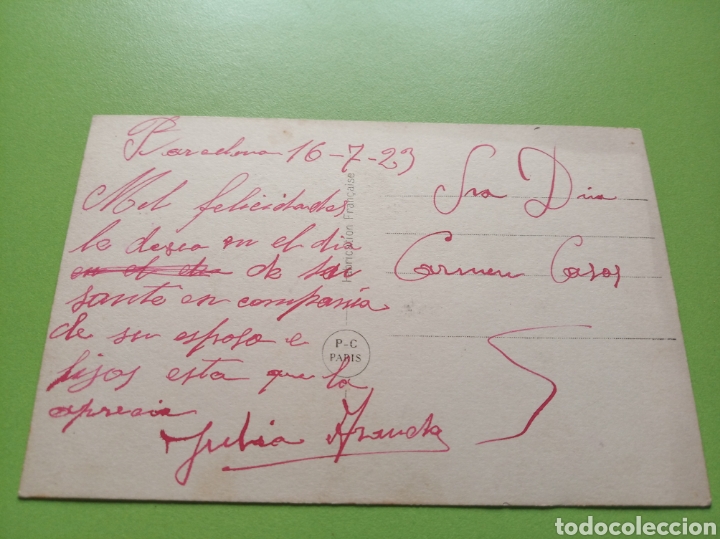 Barcelona 16-7-23
Mil felicidades
le deseo en el dia
en el dia de su
santo en compañia
de su esposo e
hijos esta que la
aprecia
Julia Aranda
Fabrication Française
P-C
PARIS
Sra Dña
Carmen Casas
todocoleccion